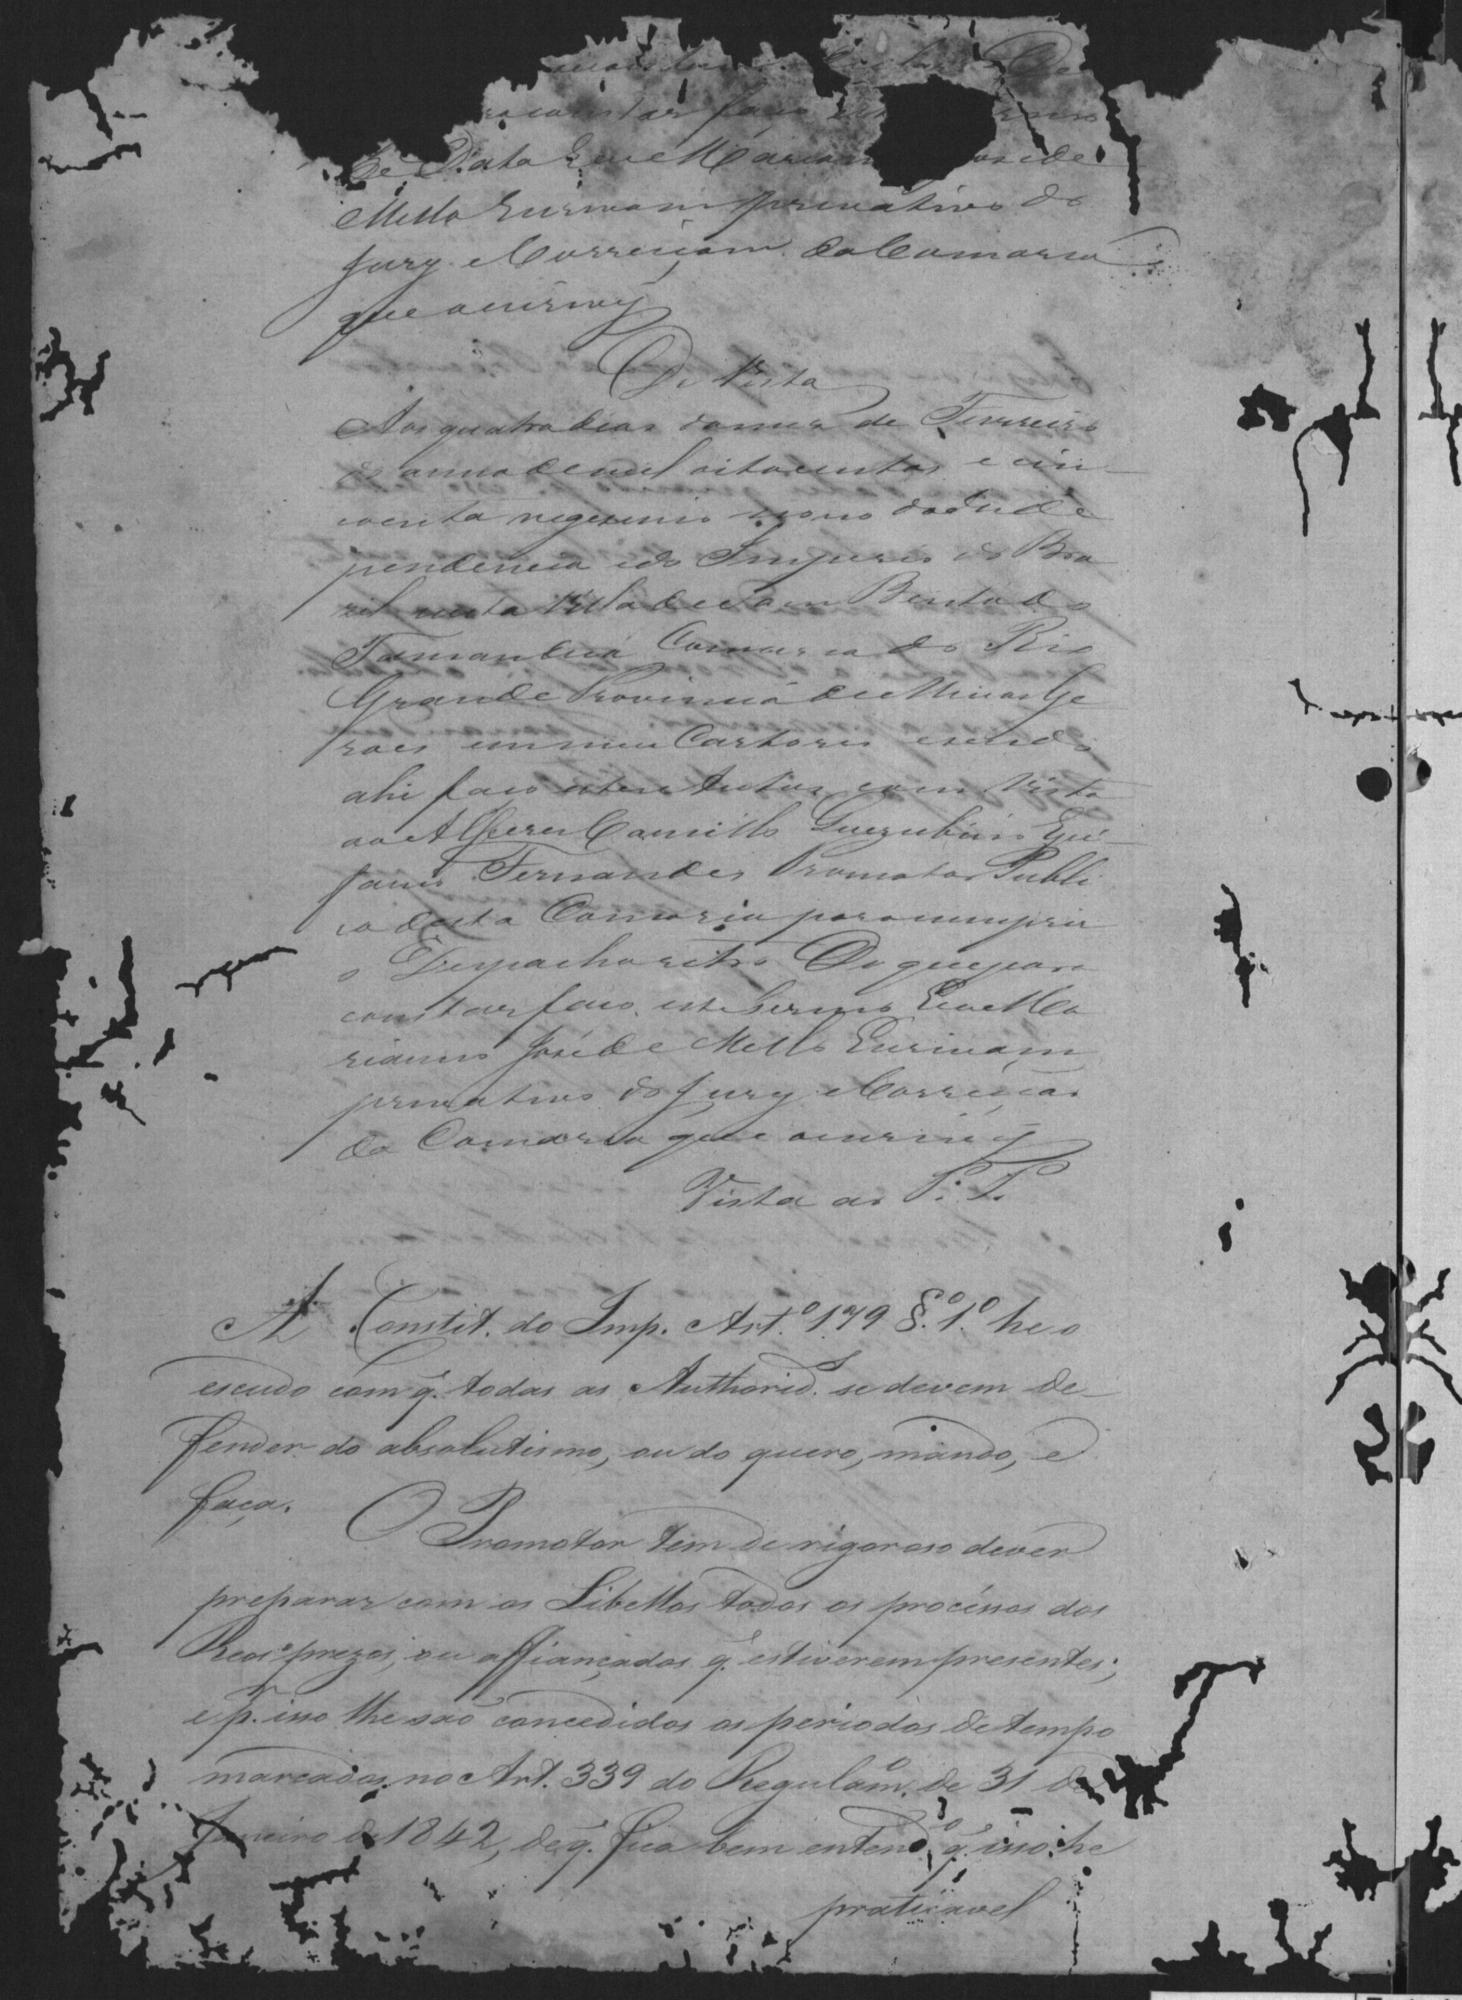 constar faço
de Data Eu e Marian José de
Mello Escrivam privativo do
Jury e Correiçam da Comarca
que o escrevy
De Vista
Aos quatro dias do mes de Fevereiro
do anno de mil oitocentos e cin-
coenta vigesimo nono da Inde
pendencia e do Imperio do Bra
zil nesta Villa de Sam Bento do
Tamanduá Comarca do Rio
Grande Provincia de Minas Ge
raes em meu Cartorio e sendo
ahi faço estes Autos com Vista
ao Alferes Camillo
Fernandes Promotor Publi
co desta Comarca para cumprir
o Despacho retro De que para
constar faço este termo Eu e Ma
rianno José de Mello Escrivam
privativo do Jury e Correiçao
da Comarca que o escrevy
Vista ao P. P.
A Constit. do Imp. Art.º 179 §.º 1.º he o
escudo com q̃. todas as Authorid.ˢ se devem de-
fender do absolutismo, ou do quero, mando, e
faça. O Promotor tem de rigoroso dever
preparar com os Libellos todos os procéssos dos
Reos prezos, ou affiançados q̃. estiverem presentes;
e p.ʳ isso lhe são concedidos os periodos de tempo
marcados no Art. 339 do Regulam.º de 31 de
Janeiro de 1842, de q̃. fica bem entend.º q̃. isso he
praticavel